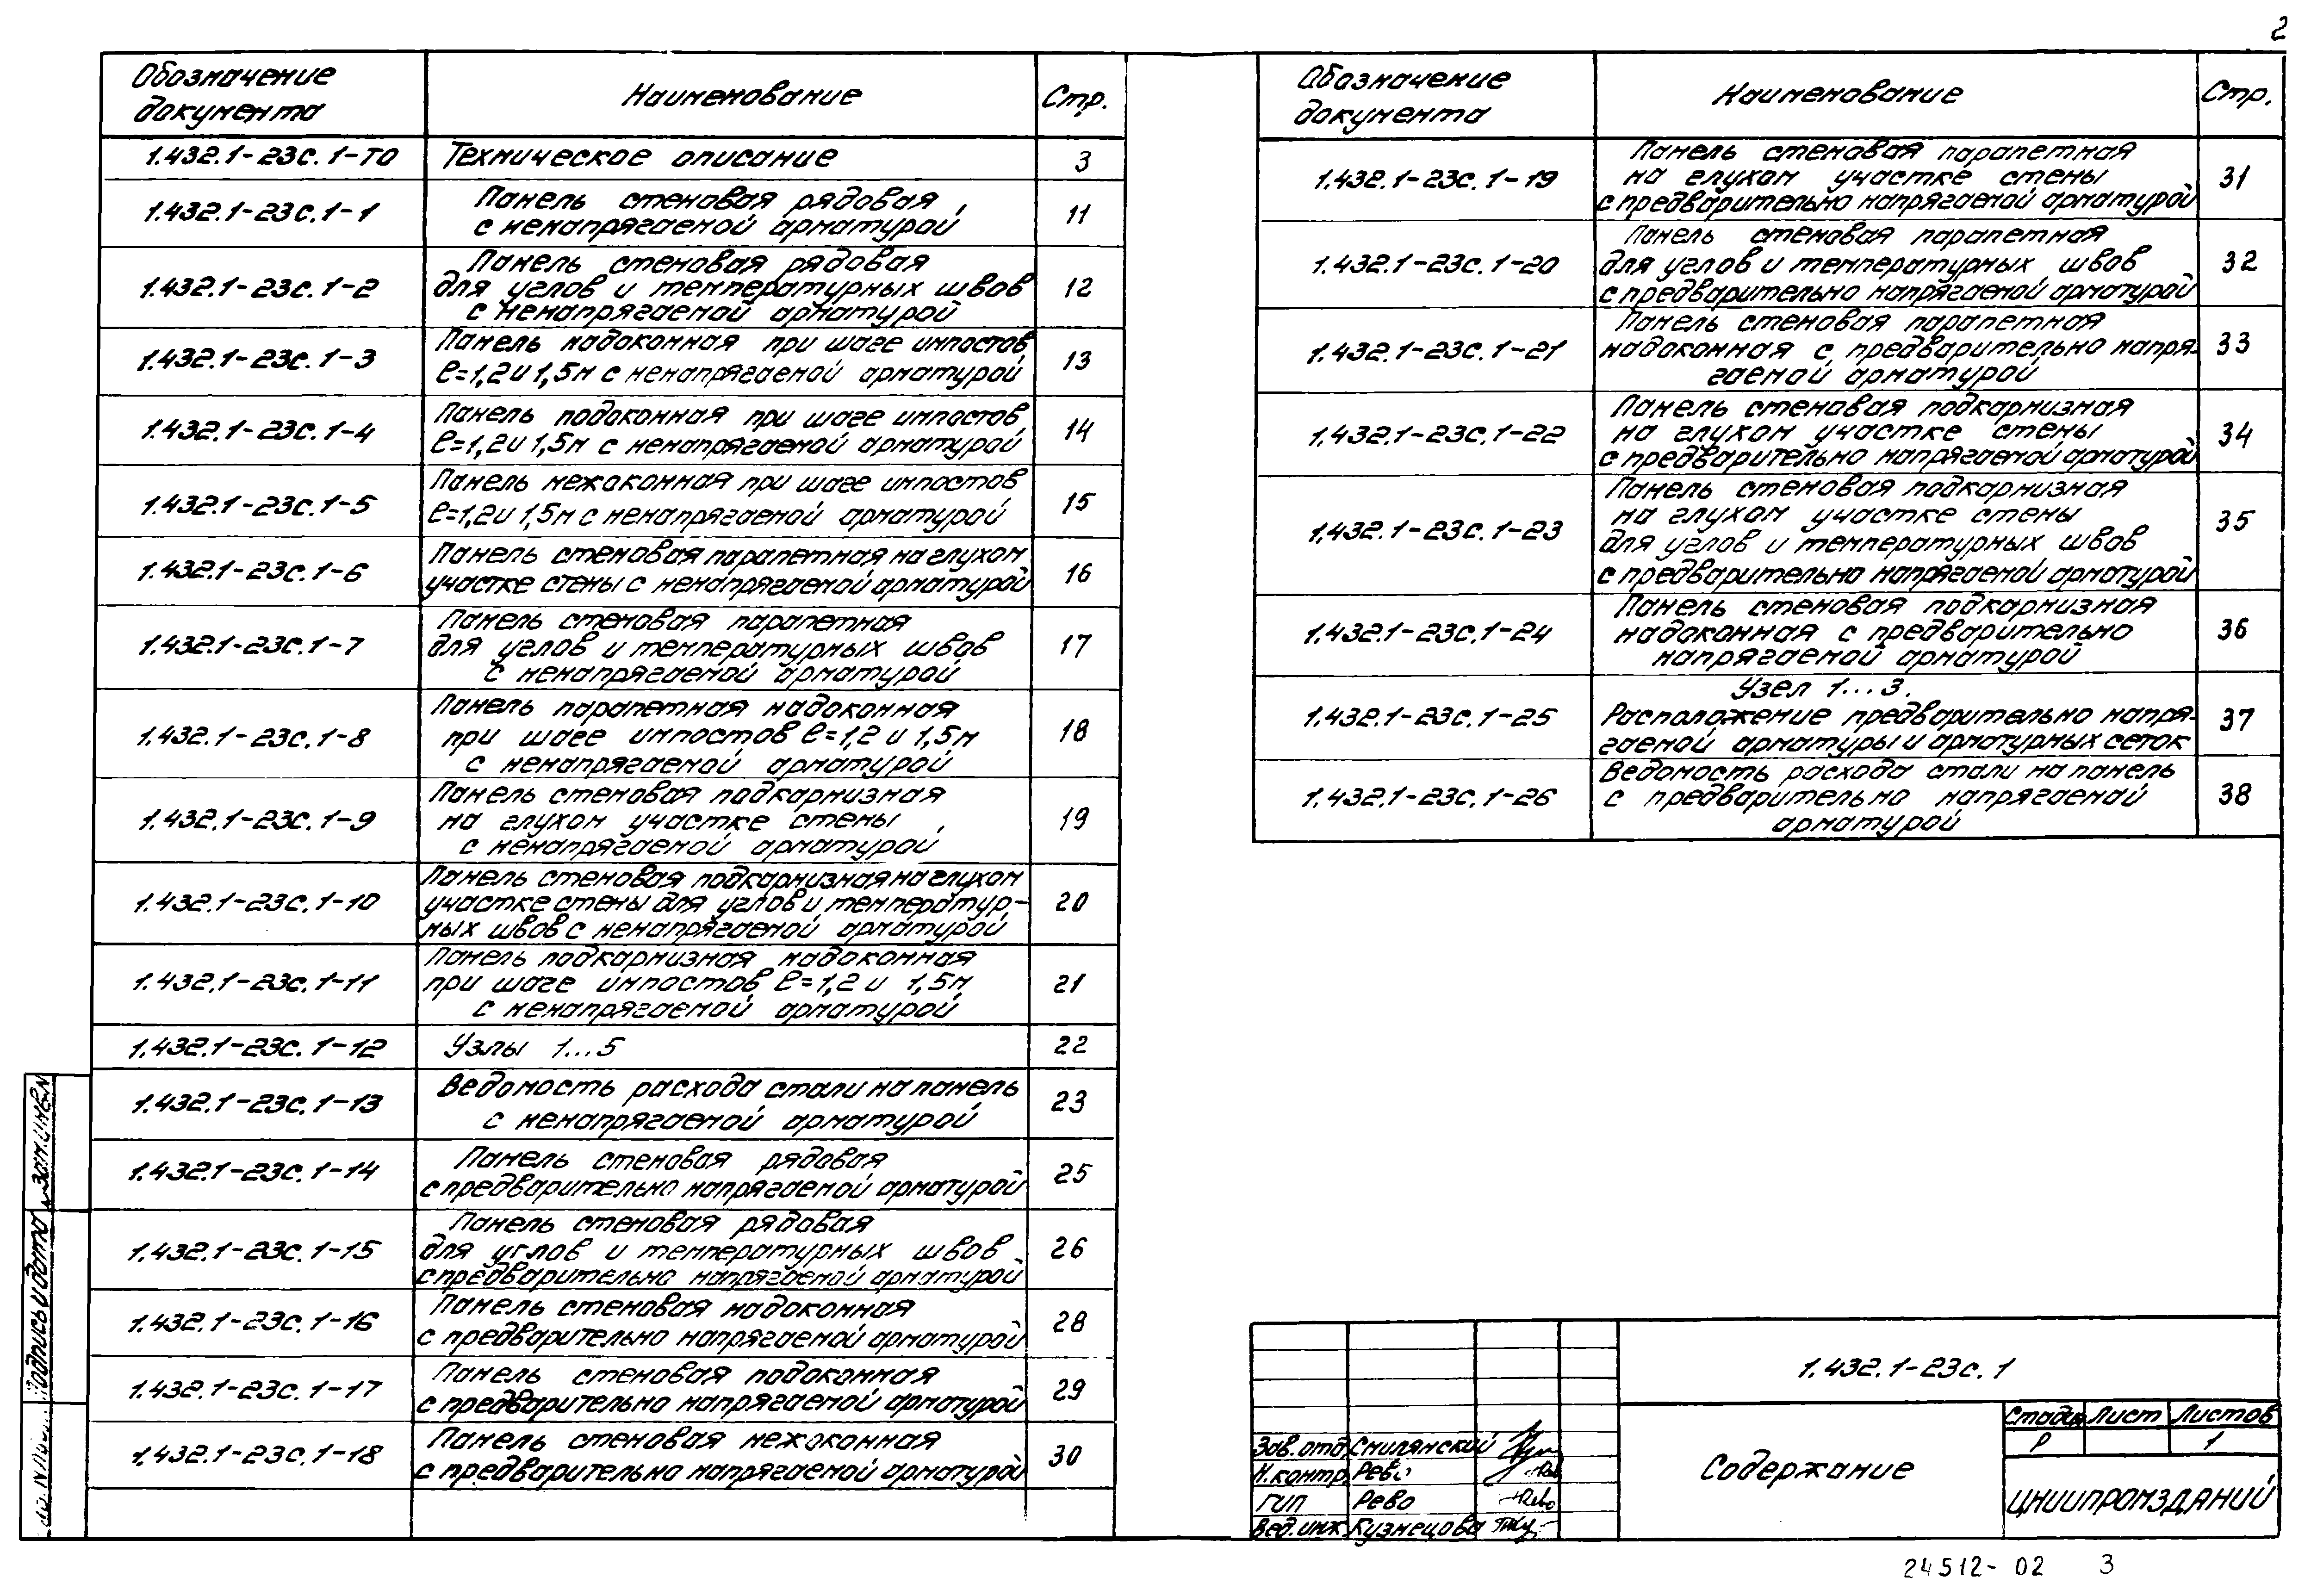 2
Обозначение
документа
Наименование
Стр.
1.432.1-23с.1-ТО
Техническое описание
3
1.432.1-23с.1-1
Панель стеновая рядовая
с ненапрягаемой арматурой
11
1.432.1-23с.1-2
Панель стеновая рядовая
для углов и температурных швов
с ненапрягаемой арматурой
12
1.432.1-23с.1-3
Панель надоконная при шаге импостов
ℓ=1,2 и 1,5м с ненапрягаемой арматурой
13
1.432.1-23с.1-4
Панель подоконная при шаге импостов
ℓ=1,2 и 1,5м с ненапрягаемой арматурой
14
1.432.1-23с.1-5
Панель межоконная при шаге импостов
ℓ=1,2 и 1,5м с ненапрягаемой арматурой
15
1.432.1-23с.1-6
Панель стеновая парапетная на глухом
участке стены с ненапрягаемой арматурой
16
1.432.1-23с.1-7
Панель стеновая парапетная
для углов и температурных швов
с ненапрягаемой арматурой
17
1.432.1-23с.1-8
Панель парапетная надоконная
при шаге импостов ℓ=1,2 и 1,5м
с ненапрягаемой арматурой
18
1.432.1-23с.1-9
Панель стеновая подкарнизная
на глухом участке стены
с ненапрягаемой арматурой
19
1.432.1-23с.1-10
Панель стеновая подкарнизная на глухом
участке стены для углов и температур-
ных швов с ненапрягаемой арматурой
20
1.432.1-23с.1-11
Панель подкарнизная надоконная
при шаге импостов ℓ=1,2 и 1,5м
с ненапрягаемой арматурой
21
1.432.1-23с.1-12
Узлы 1...5
22
1.432.1-23с.1-13
Ведомость расхода стали на панель
с ненапрягаемой арматурой
23
1.432.1-23с.1-14
Панель стеновая рядовая
с предварительно напрягаемой арматурой
25
1.432.1-23с.1-15
Панель стеновая рядовая
для углов и температурных швов
с предварительно напрягаемой арматурой
26
1.432.1-23с.1-16
Панель стеновая надоконная
с предварительно напрягаемой арматурой
28
1.432.1-23с.1-17
Панель стеновая подоконная
с предварительно напрягаемой арматурой
29
1.432.1-23с.1-18
Панель стеновая межоконная
с предварительно напрягаемой арматурой
30
Обозначение
документа
Наименование
Стр.
1.432.1-23с.1-19
Панель стеновая парапетная
на глухом участке стены
с предварительно напрягаемой арматурой
31
1.432.1-23с.1-20
Панель стеновая парапетная
для углов и температурных швов
с предварительно напрягаемой арматурой
32
1.432.1-23с.1-21
Панель стеновая парапетная
надоконная с предварительно напря-
гаемой арматурой
33
1.432.1-23с.1-22
Панель стеновая подкарнизная
на глухом участке стены
с предварительно напрягаемой арматурой
34
1.432.1-23с.1-23
Панель стеновая подкарнизная
на глухом участке стены
для углов и температурных швов
с предварительно напрягаемой арматурой
35
1.432.1-23с.1-24
Панель стеновая подкарнизная
надоконная с предварительно
напрягаемой арматурой
36
1.432.1-23с.1-25
Узел 1...3.
Расположение предварительно напря-
гаемой арматуры и арматурных сеток
37
1.432.1-23с.1-26
Ведомость расхода стали на панель
с предварительно напрягаемой
арматурой
38
Взам.инв.N
Подпись и дата
1.432.1-23с.1
Зав.отд. Смилянский
Н.контр. Рево
ГИП Рево
Вед.инж. Кузнецова
Содержание
Стадия Лист Листов
Р 1
ЦНИИПРОМЗДАНИЙ
24512-02 3